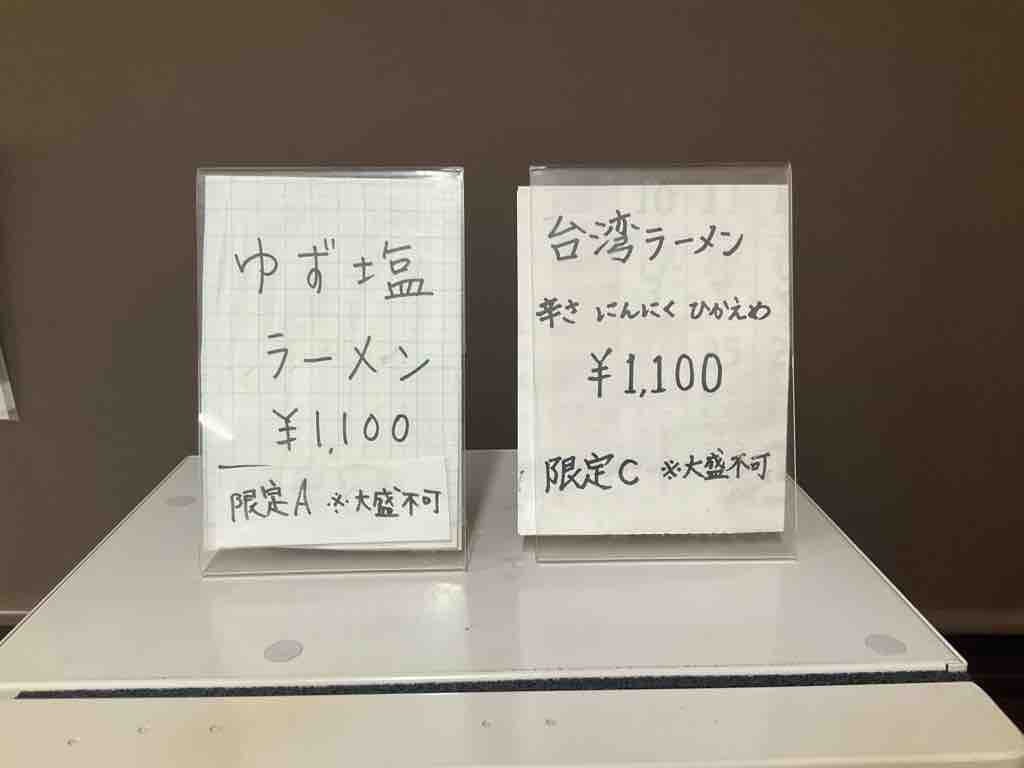 ゆず塩
ラーメン
¥1,100
限定A ※大盛不可
台湾ラーメン
辛さ にんにく ひかえめ
¥1,100
限定C ※大盛不可